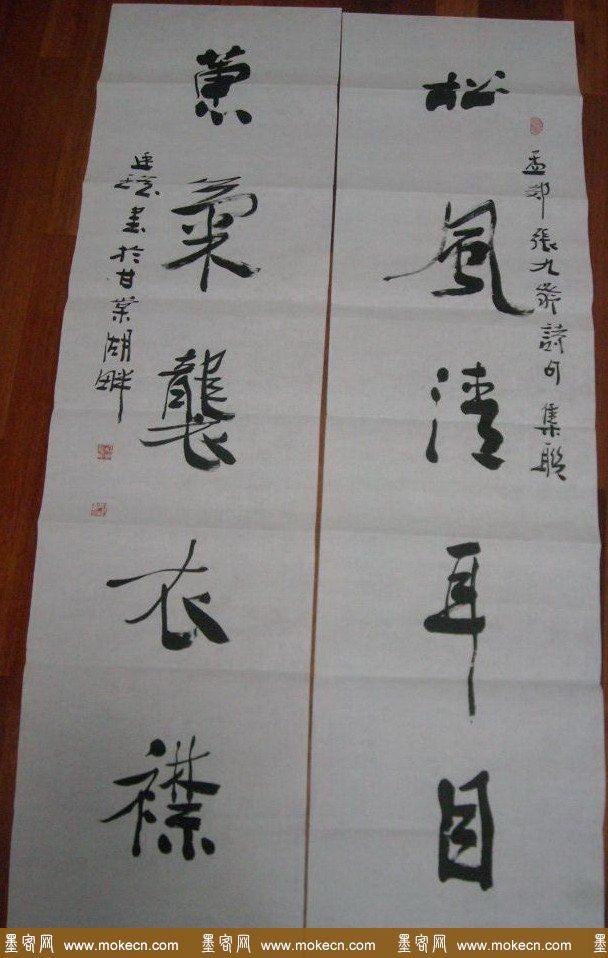 孟郊張九齡詩句集聯
松風清耳目
蕙氣襲衣襟
書於甘棠湖畔
墨客网 www.mokecn.com 墨客网 www.mokecn.com 墨客网 www.mokecn.com